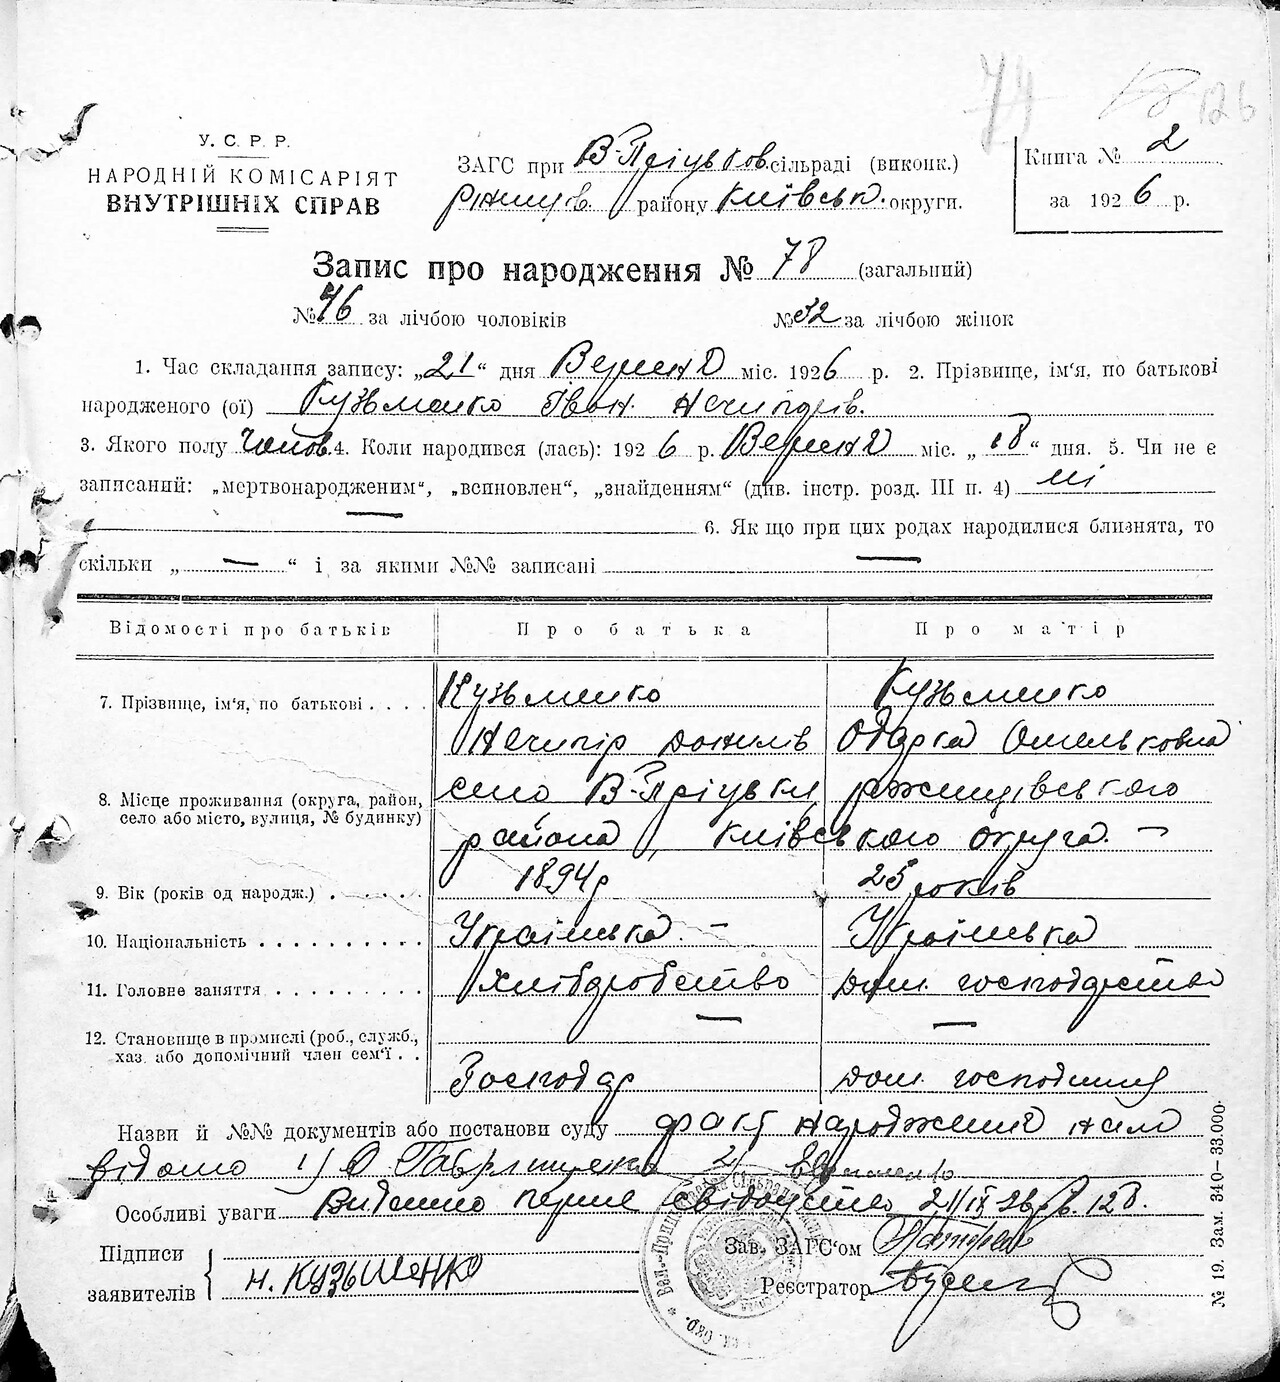 74 126
У. С. Р. Р.
НАРОДНІЙ КОМІСАРІЯТ
ВНУТРІШНІХ СПРАВ
ЗАГС при В-Пріцьков. сільраді (виконк.)
ржищів. району Київськ. округи.
Книга № 2
за 1926 р.
Запис про народження № 78 (загальний)
№ 46 за лічбою чоловіків № 32 за лічбою жінок
1. Час складання запису: „21“ дня Вересня міс. 1926 р. 2. Прізвище, ім'я, по батькові
народженого (ої) Кузьменко Іван Нечипорів.
3. Якого полу чолов. 4. Коли народився (лась): 1926 р. Вересня міс. „18“ дня. 5. Чи не є
записаний: „мертвонародженим“, „всиновлен“, „знайденням“ (див. інстр. розд. III п. 4) ні
6. Як що при цих родах народилися близнята, то
скільки „ — “ і за якими №№ записані —
Відомості про батьків Про батька Про матір
7. Прізвище, ім'я, по батькові . . . . Кузьменко Кузьменко
Нечипір Данилів Одарка Омельковна
8. Місце проживання (округа, район, село В-Пріцьки ржищівського
село або місто, вулиця, № будинку)
района, Київського округа. —
9. Вік (років од народж.) . . . . . 1894 р 25 років
10. Національність . . . . . . . . . . Українська. — Українська
11. Головне заняття . . . . . . . . . Хлібдробство Дом. господарство
12. Становище в промислі (роб., служб., — —
хаз. або допомічний член сем'ї . .
Господар Дом. господиня
Назви й №№ документів або постанови суду факт народження нам
відомо 1) 2)
Особливі уваги Видано перше свідоцтво 21/IX 26 р. в. 128.
Підписи
заявителів
Н. КУЗЬМЕНКО
Зав. ЗАГС'ом
Реєстратор
№ 19. Зам. 340—33.000.